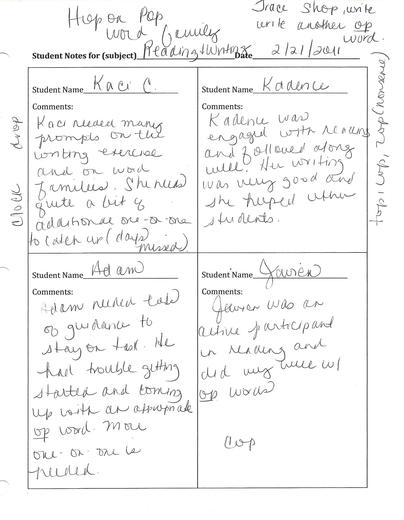 Hop on Pop
word family
Trace Shop, write
write another op
word.
Student Notes for (subject) Reading + Writing Date 2/21/2011
Student Name Kaci C.
Comments:
Kaci needed many
prompts on the
writing exercise
and on word
families. She needs
quite a bit of
additional one-or-one
to catch up (days
missed)
Student Name Kadence
Comments:
Kadence was
engaged with reading
and followed along
well. Her writing
was very good and
she helped other
students.
Student Name Adam
Comments:
Adam needed lots
of guidance to
stay on task. He
had trouble getting
started and coming
up with an appropriate
op word. More
one-on-one is
needed.
Student Name
Comments:
was an
active participant
in reading and
did very well w/
op words
Cop
Clock drop
top, hop, zop (nonsense)